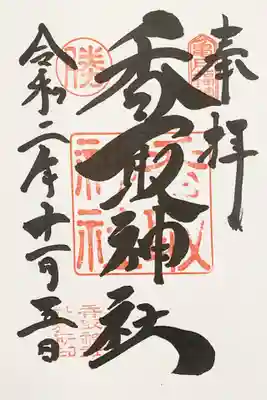 奉拝
亀戸
香取神社
勝
香取
神社
令和二年十一月五日